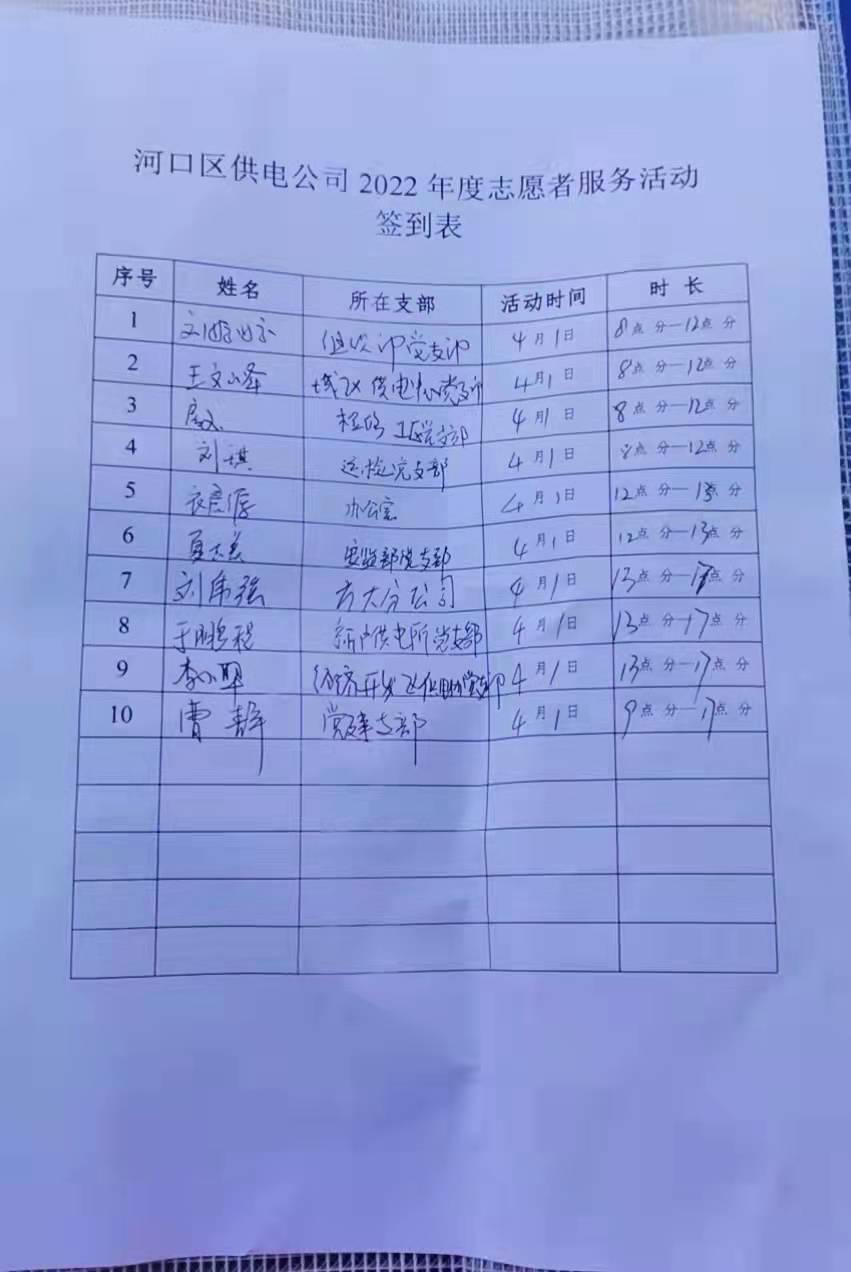 河口区供电公司 2022 年度志愿者服务活动
签到表
序号 姓名 所在支部 活动时间 时 长
1 4月1日 8点 分—12点 分
2 王文泽 城区供电 4月1日 8点 分—12点 分
3 4月1日 8点 分—12点 分
4 刘琪 运检党支部 4月1日 8点 分—12点 分
5 办公室 4月1日 12点 分—13点 分
6 安监部党支部 4月1日 12点 分—13点 分
7 刘伟强 方大分公司 4月1日 13点 分—17点 分
8 于鹏程 新户供电所党支部 4月1日 13点 分—17点 分
9 经济开发区供电所党支部 4月1日 13点 分—17点 分
10 曹静 党建支部 4月1日 9点 分—17点 分